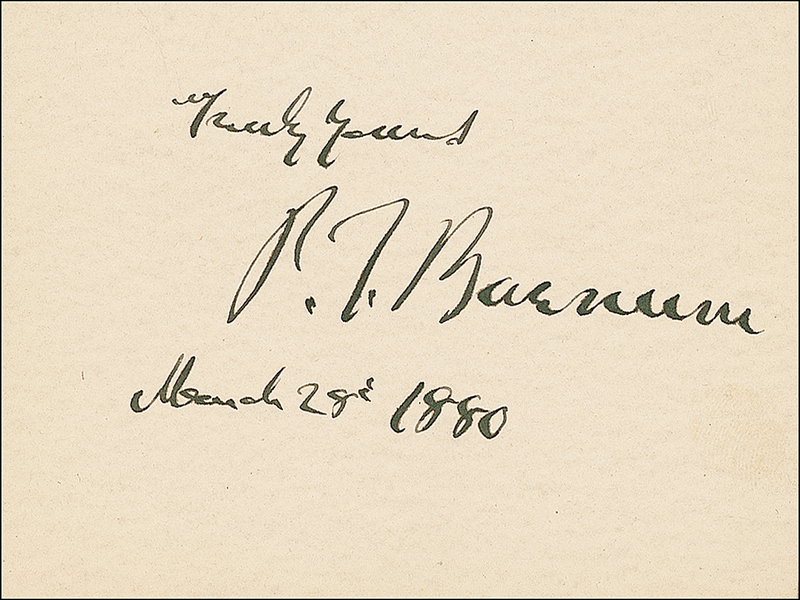 Truly yours
P. T. Barnum
March 28: 1880